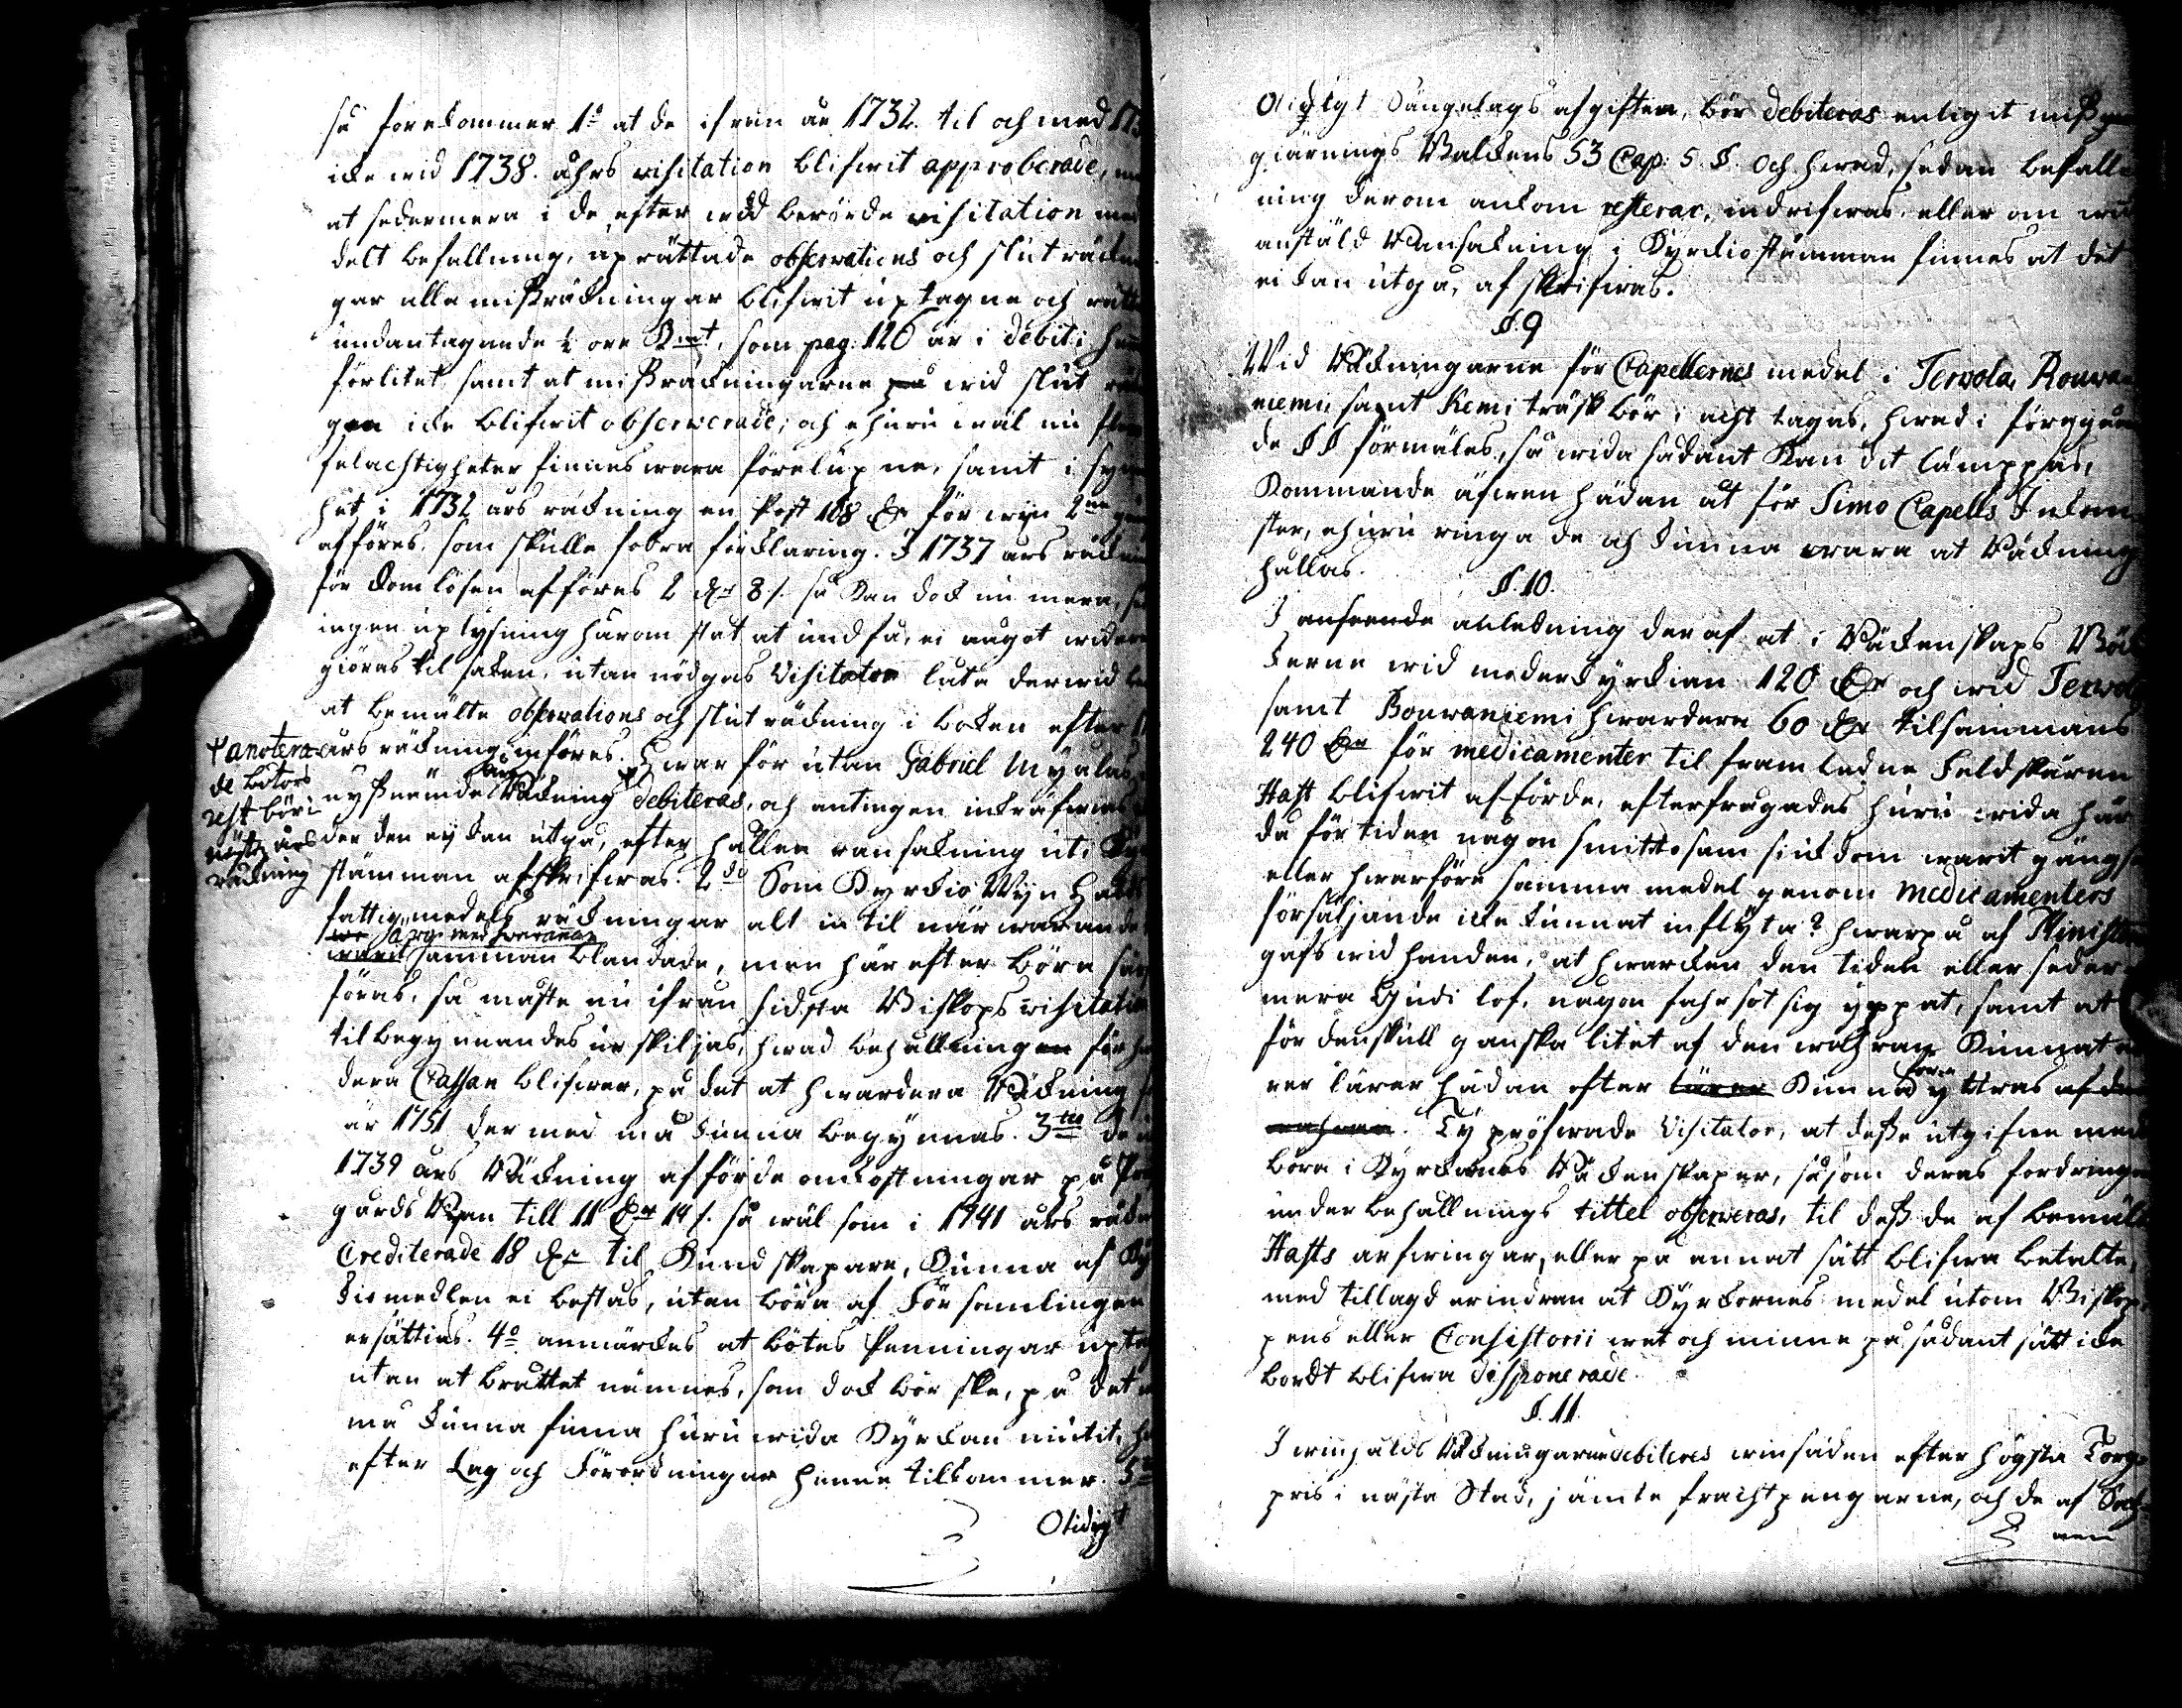 så förekommer 1o at de ifrån år 1732. til och med 173
icke wid 1738. åhrs visitation blifwit approberade, men
at sedermera i de efter wid berörde visitation med
delt befallning, uprättade observations och slut räcknin
gar alla missräkningar blifwit uptagne och rätta
undantagande ½ öre Smt, som pag. 120 är i debit
förlitet samt at missräkningarne wid slut räk
gen icke blifwit observerade; och ehuru wäl nu flere
felachtigheter finnes wara förelupne, samt i syn
het i 1732 års räkning en Post 108 Dr för wijn
afföres, som skulle fodra förklaring. I 1737 års räkn
för domlösen afföres 2 Dr 8 /. så kan dock nu mera,
ingen uplysning härom stå at undfå, ei något widare
giöras til saken, utan nödgas Visitator låta derwid
at bemälte observations och slut räkning i boken efter
års räkning införes. Hwar för utan Gabriel Myälas
nyssnämde års Räkning debiteras, och antingen inkräfwas
der den ey kan utgå, efter hållen ransakning uti Kyr
stämman afskrifwas. 2do Som Kyrkio Wijn Håll
fattig medels räkningar alt in til närwarande
warit samman blandade, men här efter böra sär
föras, så måste nu ifrån sidsta Biskops visitation
til begynnandes urskiljas, hwad behållningen för hwar
dera Cassan blifwer, på det at hwardera Räkning
år 1751 der med må kunna begynnas. 3tio de
1739 års Räkning afförde omkostningar på Präst
gårds Wägen till 11 Dr 14 /. så wäl som i 1741 åhrs räkn
Crediterade 18 Dr til Kundskapare, kunna af Kyr
kiomedlen ei bestås, utan böra af Församlingen
ersättias. 4o anmärckes at böteˢ Penningar uptag
utan at brottet nämnes, som dock bör ske, på det
må kunna finna huru wida Kyrkan niutit,
efter Lag och Förordningar henne tilkommer. 5
Olidigt
† anotera
de botors
rest bör i
nästa års
räckning
Olidigt Sängelags afgiften, bör debiteras enligit miss
giärnings Balkens 53 Cap: 5. §. och hwad, sedan befall
ning derom ankom resterar, indrifwas, eller om wid
anstäld Ransakning i Kyrkiostämman finnes at det
ei kan utgå, afskrifwas.
§. 9
Wid Räkningarne för Capellernes medel i Terwola, Rouwa
niemi, samt Kemiträsk bör i acht tagas, hwad i föregåen
de §§ förmäles, så wida sådant kan dit lämppas,
kommande äfwen hädan åt för Simo Capells Inkom
ster, ehuru ringa de och kunna wara at Räkning
hållas.
§. 10.
I anseende anledning der af at i Räkenskaps Böc
kerne wid moderkyrkian 120 Dr och wid Terwola
samt Rouwaniemi hwardera 60 Dr tilsammans
240 Dr för medicamenter til framledne Feldskären
Hast blifwit afförde, efterfrågades huru wida här
då förtiden någon smittosam siukdom warit gängse
eller hwarföre samma medel genom medicamenters
försäljande icke kunnat inflyta? hwarpå af Minister
gafs wid handen, at hwarken den tiden eller seder
mera Gudi lof, någon farsot sig yppat, samt at
för denskull ganska litet af den wahran kunnat
rer lärer hädan efter lärer kunna yttras af den
wahran. Ty pröfwade Visitator, at desse utgifne medel
böra i Kyrkornes Räkenskaper, såsom deras fordringar
under behållnings tittel observeras, til dess de af bemälte
Hasts arfwingar, eller på annat sätt blifwa betalte,
med tillagd erindran at Kyrkornes medel utom Biskop
pens eller Consistorii wet och minne på sådant sätt icke
bordt blifwa disponerade.
§. 11.
I winhålds Räkningarne debiteres winsäden efter högsta Torg
pris i nästa Stad, jämte frachtpengarne, och de af Sock
nen